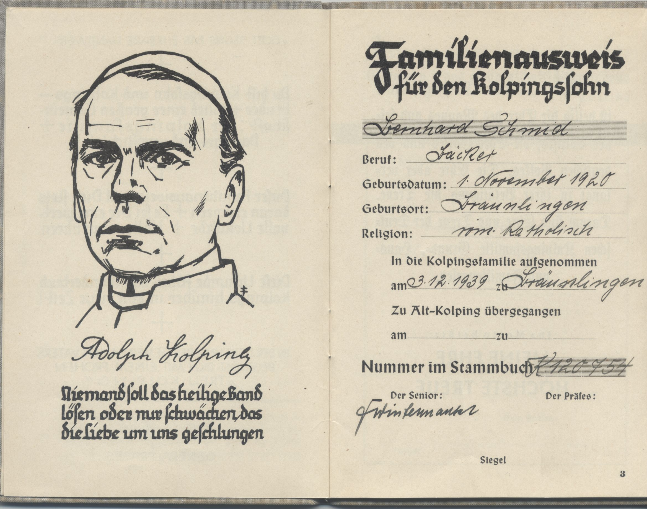 Adolph Kolping
Niemand soll das heilige Band
lösen oder nur schwächen, das
die Liebe um uns geschlungen
Familienausweis
für den Kolpingssohn
Bernhard Schmid
Beruf: Bäcker
Geburtsdatum: 1. November 1920
Geburtsort: Bräunlingen
Religion: röm. Katholisch
In die Kolpingsfamilie aufgenommen
am 3.12.1939 zu Bräunlingen
Zu Alt-Kolping übergegangen
am zu
Nummer im Stammbuch K 120 754
Der Senior: Der Präses:
Siegel
3